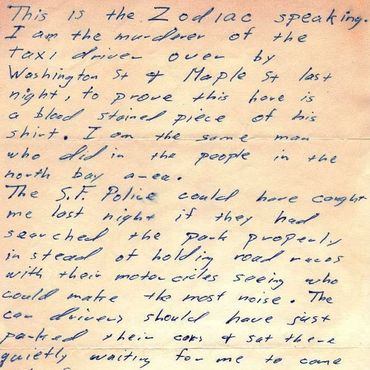 This is the Zodiac speaking.
I am the murderer of the
taxi driver over by
Washington St & Maple St last
night, to prove this here is
a blood stained piece of his
shirt. I am the same man
who did in the people in the
north bay area.
The S.F. Police could have caught
me last night if they had
searched the park properly
instead of holding road races
with their motorcicles seeing who
could make the most noise. The
car drivers should have just
parked their cars & sat there
quietly waiting for me to come